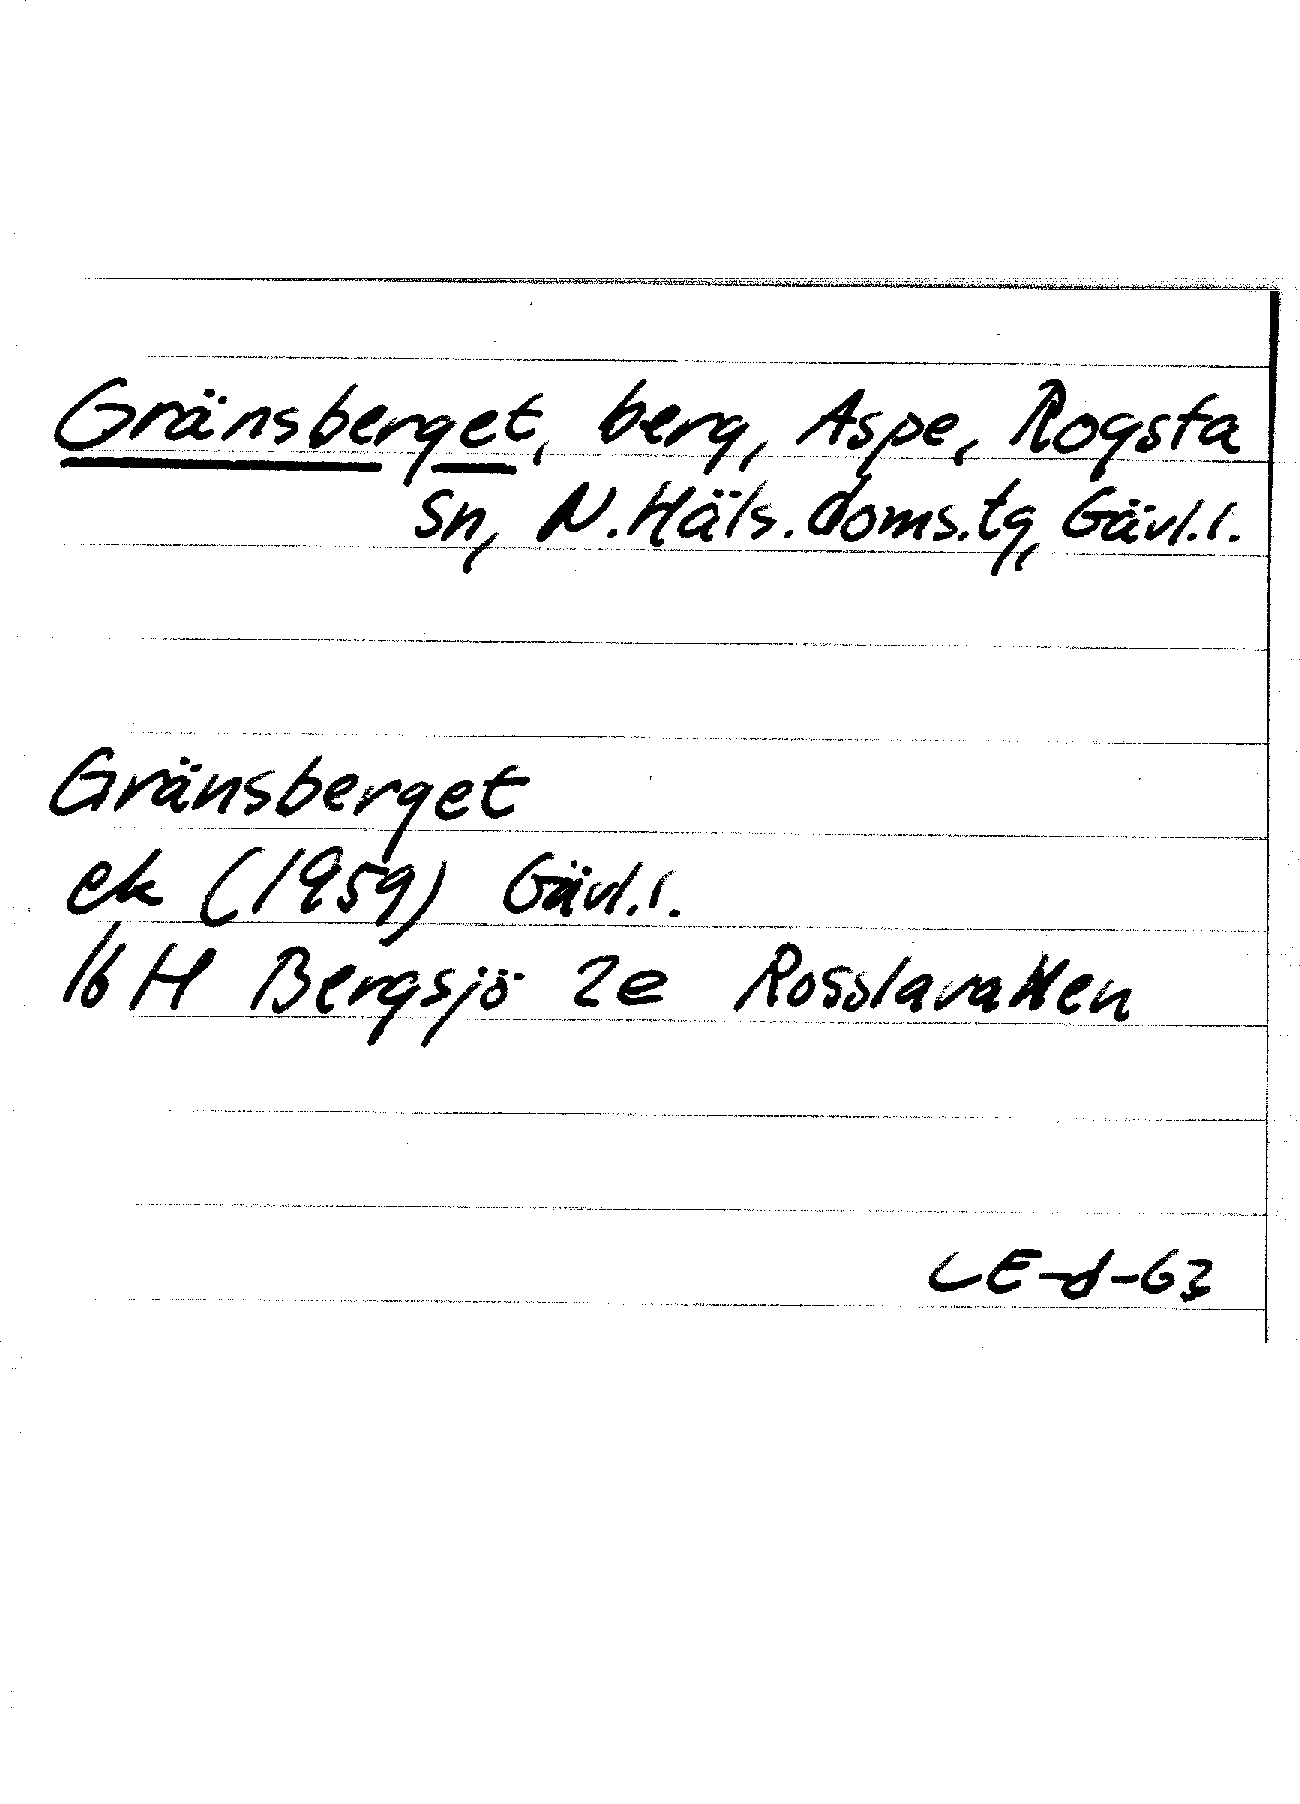 Gränsberget, berg, Aspe, Rogsta
sn, N. Häls. doms.tg, Gävl.l.
Gränsberget
ek (1959) Gävl.l.
16 H Bergsjö 2e
LE-d-63